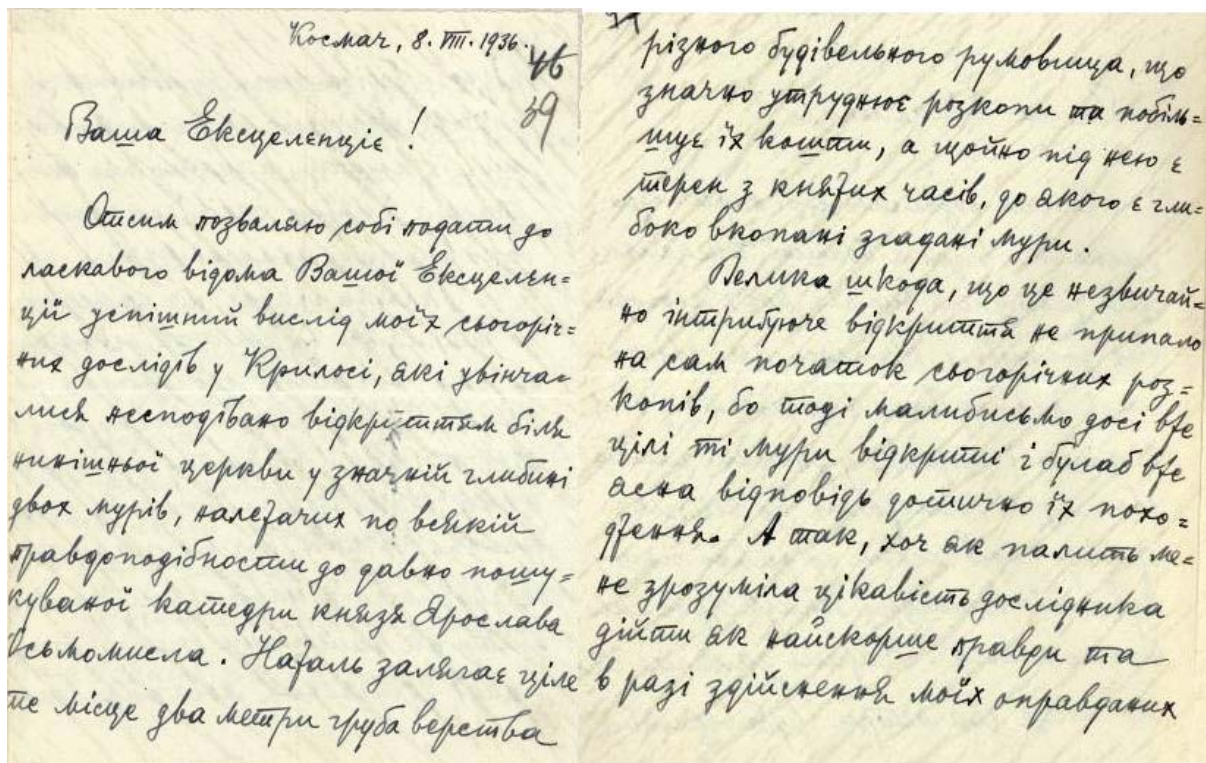 Космач, 8. VIII. 1936.
46
39
Ваша Ексцеленціє!
Отсим позваляю собі подати до
ласкавого відома Вашої Ексцелен=
ції успішний вислід моїх сьогоріч=
них дослідів у Крилосі, які увінча=
лися несподівано відкриттям біля
нинішньої церкви у значній глибині
двох мурів, належачих по всякій
правдоподібности до давно пошу=
куваної катедри князя Ярослава
Осьмомисла. Нажаль залягає ціле
те місце два метри груба верства
різного будівельного румовища, що
значно утруднює розкопи та побіль=
шує їх кошти, а щойно під нею є
терен з княжих часів, до якого є гли=
боко вкопані згадані мури.
Велика шкода, що це незвичай=
но інтригуюче відкриття не припало
на сам початок сьогорічних роз=
копів, бо тоді малибисьмо досі вже
цілі ті мури відкриті і булаб вже
ясна відповідь дотично їх похо=
дження. А так, хоч як палить ме=
не зрозуміла цікавість дослідника
дійти як найскорше правди та
в разі здійснення моїх оправданих